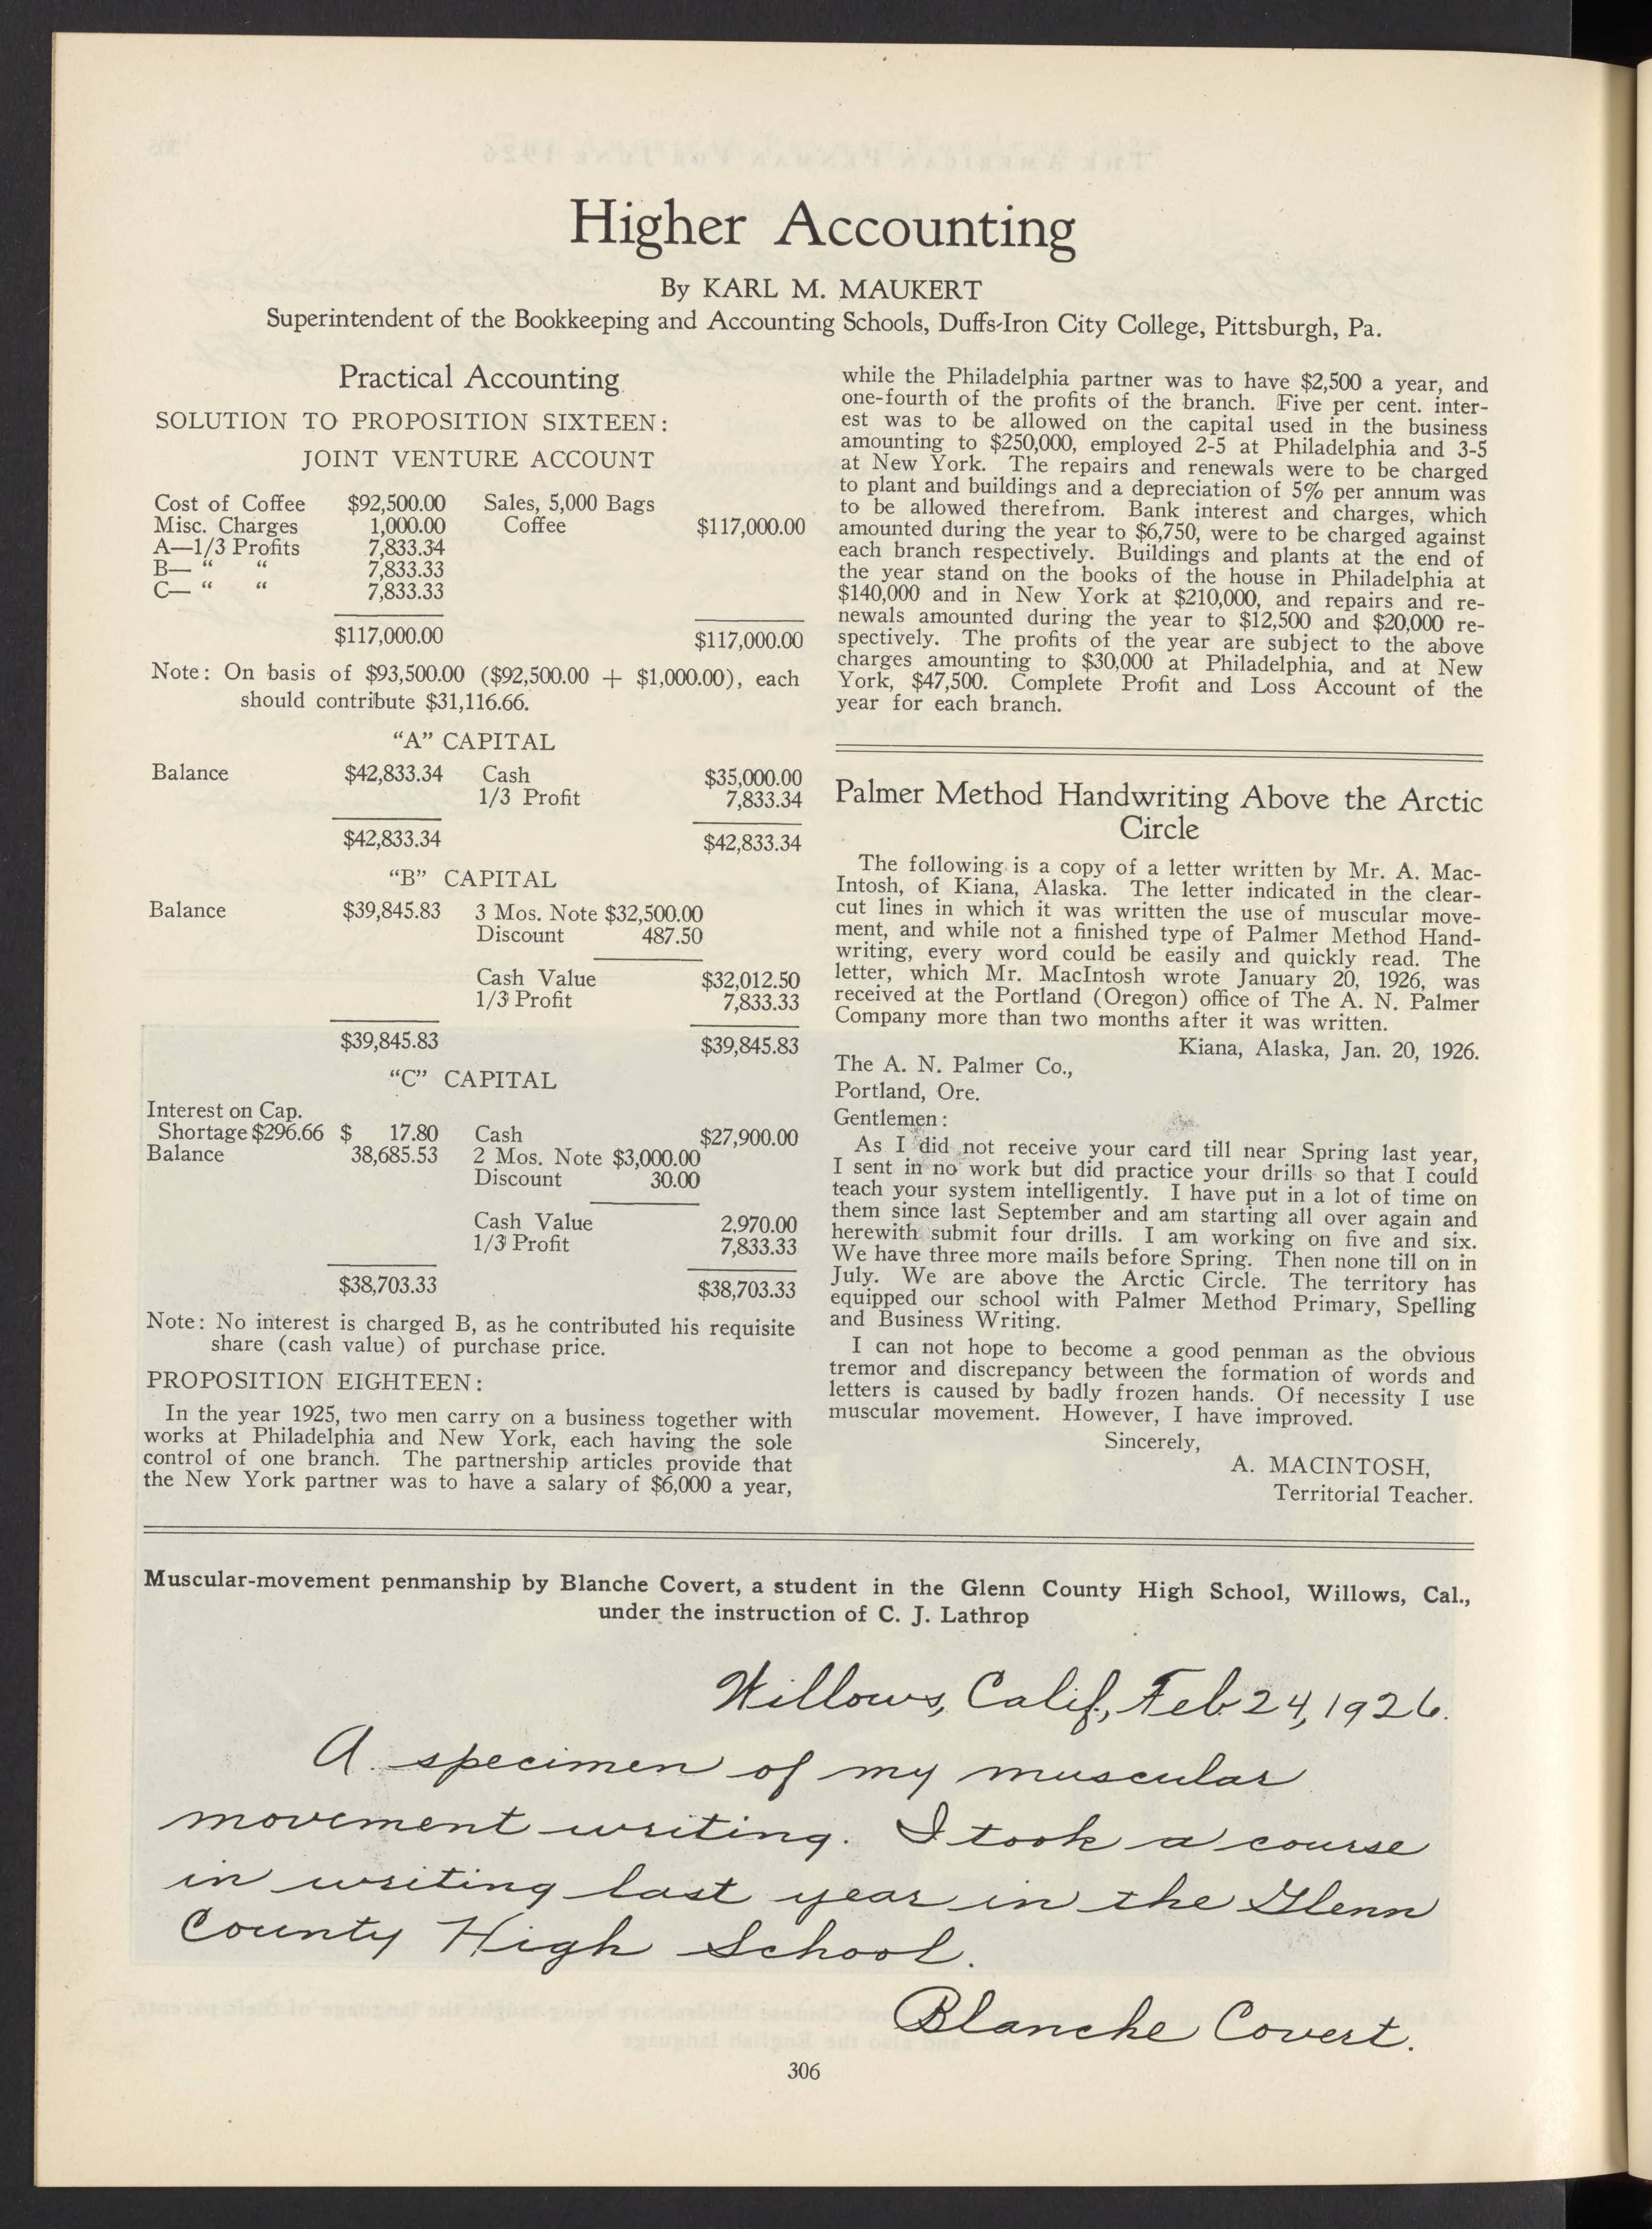 Higher Accounting
By KARL M. MAUKERT
Superintendent of the Bookkeeping and Accounting Schools, Duffs-Iron City College, Pittsburgh, Pa.
Practical Accounting
SOLUTION TO PROPOSITION SIXTEEN:
JOINT VENTURE ACCOUNT
Cost of Coffee $92,500.00 Sales, 5,000 Bags
Misc. Charges 1,000.00 Coffee $117,000.00
A—1/3 Profits 7,833.34
B— “ “ 7,833.33
C— “ “ 7,833.33
$117,000.00 $117,000.00
Note: On basis of $93,500.00 ($92,500.00 + $1,000.00), each
should contribute $31,116.66.
“A” CAPITAL
Balance $42,833.34 Cash $35,000.00
1/3 Profit 7,833.34
$42,833.34 $42,833.34
“B” CAPITAL
Balance $39,845.83 3 Mos. Note $32,500.00
Discount 487.50
Cash Value $32,012.50
1/3 Profit 7,833.33
$39,845.83 $39,845.83
“C” CAPITAL
Interest on Cap.
Shortage $296.66 $ 17.80 Cash $27,900.00
Balance 38,685.53 2 Mos. Note $3,000.00
Discount 30.00
Cash Value 2.970.00
1/3 Profit 7,833.33
$38,703.33 $38,703.33
Note: No interest is charged B, as he contributed his requisite
share (cash value) of purchase price.
PROPOSITION EIGHTEEN:
In the year 1925, two men carry on a business together with
works at Philadelphia and New York, each having the sole
control of one branch. The partnership articles provide that
the New York partner was to have a salary of $6,000 a year,
while the Philadelphia partner was to have $2,500 a year, and
one-fourth of the profits of the branch. Five per cent. inter-
est was to be allowed on the capital used in the business
amounting to $250,000, employed 2-5 at Philadelphia and 3-5
at New York. The repairs and renewals were to be charged
to plant and buildings and a depreciation of 5% per annum was
to be allowed therefrom. Bank interest and charges, which
amounted during the year to $6,750, were to be charged against
each branch respectively. Buildings and plants at the end of
the year stand on the books of the house in Philadelphia at
$140,000 and in New York at $210,000, and repairs and re-
newals amounted during the year to $12,500 and $20,000 re-
spectively. The profits of the year are subject to the above
charges amounting to $30,000 at Philadelphia, and at New
York, $47,500. Complete Profit and Loss Account of the
year for each branch.
Palmer Method Handwriting Above the Arctic
Circle
The following is a copy of a letter written by Mr. A. Mac-
Intosh, of Kiana, Alaska. The letter indicated in the clear-
cut lines in which it was written the use of muscular move-
ment, and while not a finished type of Palmer Method Hand-
writing, every word could be easily and quickly read. The
letter, which Mr. MacIntosh wrote January 20, 1926, was
received at the Portland (Oregon) office of The A. N. Palmer
Company more than two months after it was written.
Kiana, Alaska, Jan. 20, 1926.
The A. N. Palmer Co.,
Portland, Ore.
Gentlemen:
As I did not receive your card till near Spring last year,
I sent in no work but did practice your drills so that I could
teach your system intelligently. I have put in a lot of time on
them since last September and am starting all over again and
herewith submit four drills. I am working on five and six.
We have three more mails before Spring. Then none till on in
July. We are above the Arctic Circle. The territory has
equipped our school with Palmer Method Primary, Spelling
and Business Writing.
I can not hope to become a good penman as the obvious
tremor and discrepancy between the formation of words and
letters is caused by badly frozen hands. Of necessity I use
muscular movement. However, I have improved.
Sincerely,
A. MACINTOSH,
Territorial Teacher.
Muscular-movement penmanship by Blanche Covert, a student in the Glenn County High School, Willows, Cal.,
under the instruction of C. J. Lathrop
Willows, Calif., Feb. 24, 1926.
A specimen of my muscular
movement writing. I took a course
in writing last year in the Glenn
County High School.
Blanche Covert.
306